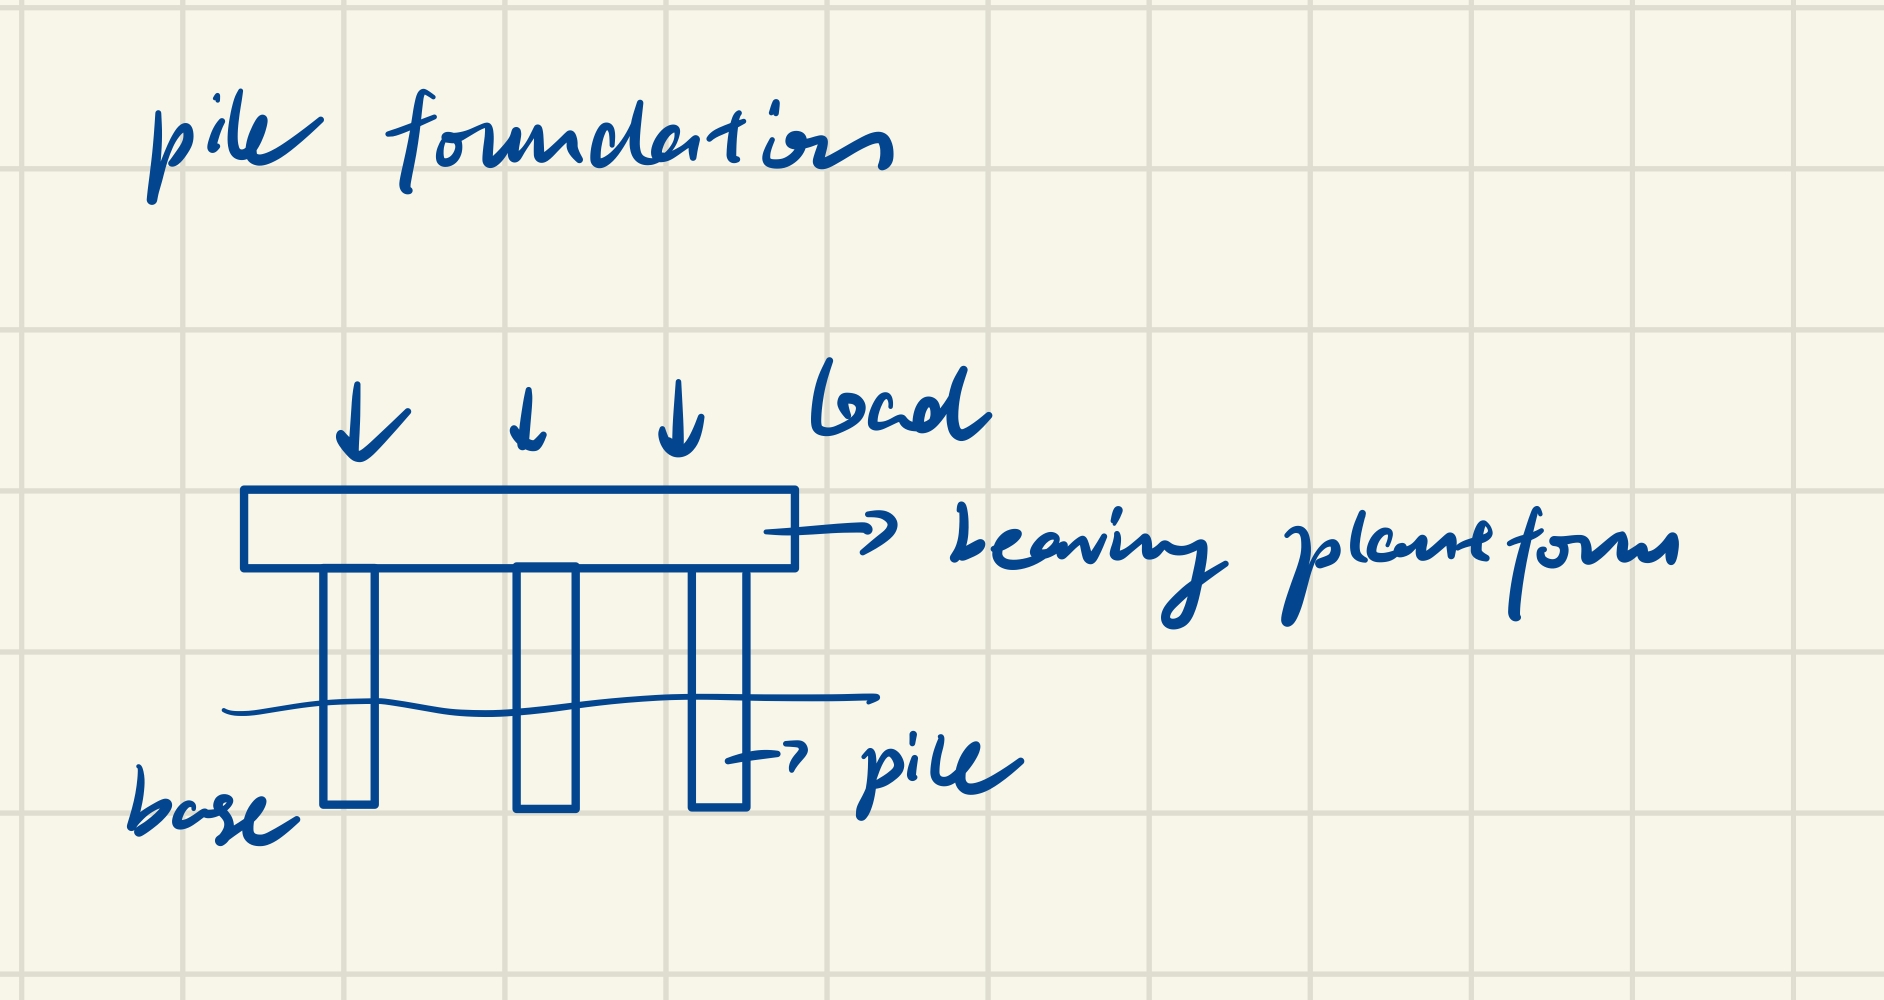 pile foundation
load
bearing planeform
base
pile